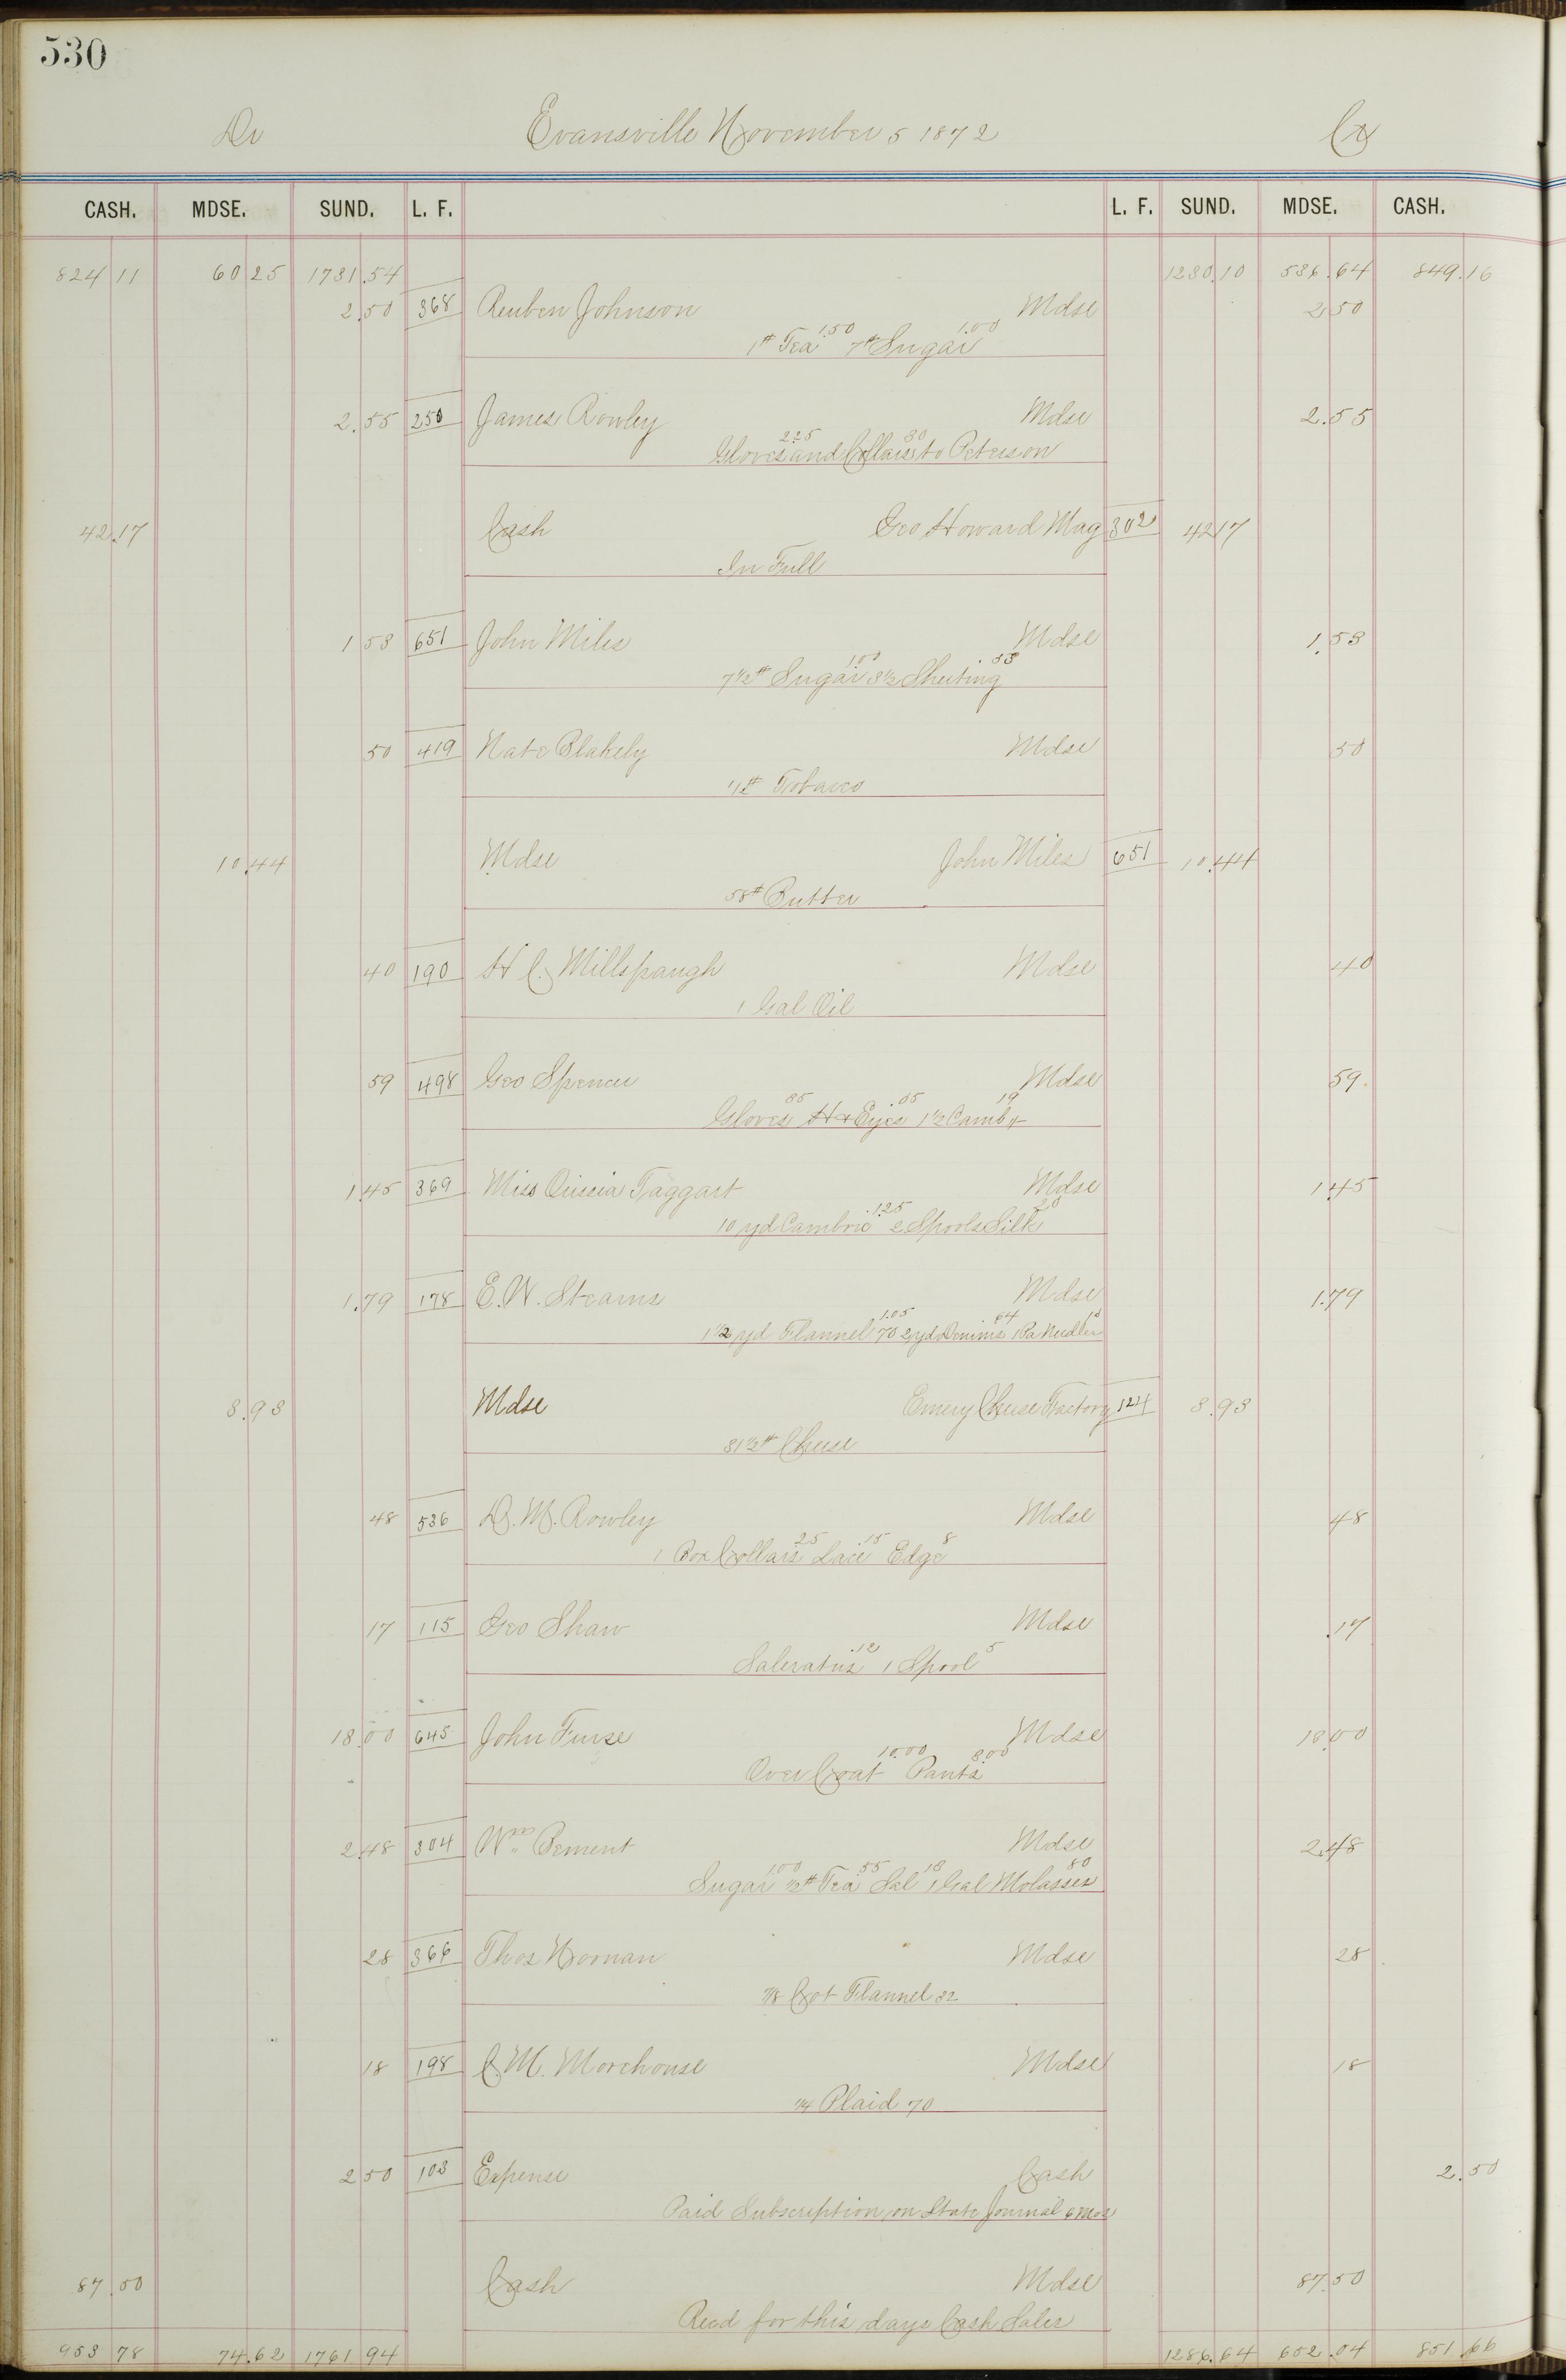 530
Dr Evansville November 5 1872 Cr
CASH. MDSE. SUND. L. F. L. F. SUND. MDSE. CASH.
824 11 60 25 1731.54 1230.10 536.64 849.16
2.50 368 Reuben Johnson Mdse 2.50
1# Tea 1.50 7# Sugar 1.00
2.55 250 James Rowley Mdse 2.55
Gloves 2.25 and Collars 30 to Peterson
42.17 Cash Geo Howard Mag 302 42.17
In Full
1 53 651 John Miles Mdse 1.53
7 1/2# Sugar 1.00 3 1/2 Sheeting 53
50 419 Nate Blakely Mdse 50
1/2# Tobacco
10.44 Mdse John Miles 651 10.44
58# Butter
40 190 H C. Millspaugh Mdse 40
1 Gal Oil
59 498 Geo Spencer Mdse 59
Gloves 35 H & Eyes .05 1 1/2 Camb 19
1.45 369 Miss Taggart Mdse 1.45
10 yd Cambric 1.25 2 Spools Silk 20
1.79 178 E. W. Stearns Mdse 1.79
1 1/2 yd Flannel 70 1.05 2 yd Denims 64 1 Pa Needles 10
3.93 Mdse Emery Cheese Factory 124 3.93
31 1/2# Cheese
48 536 D. M. Rowley Mdse 48
1 Box Collars 25 Lace 15 Edge 8
17 115 Geo Shaw Mdse .17
Saleratus .12 1 Spool 5
13 00 645 John Furse Mdse 13.00
Over Coat 10.00 Pants 3.00
2.48 304 Wm Bement Mdse 2.48
Sugar 1.00 1/2# Tea 55 Sal 13 1 Gal Molasses 80
28 366 Thos Noonan Mdse 28
7/8 Cot Flannel 32
18 198 C. M. Morehouse Mdse 18
1/4 Plaid 70
2 50 103 Expense Cash 2.50
Paid Subscription on State Journal 6 mos
87.50 Cash Mdse 87.50
Recd for this days Cash Sales
953 78 74.62 1761 94 1286.64 652.04 851.66